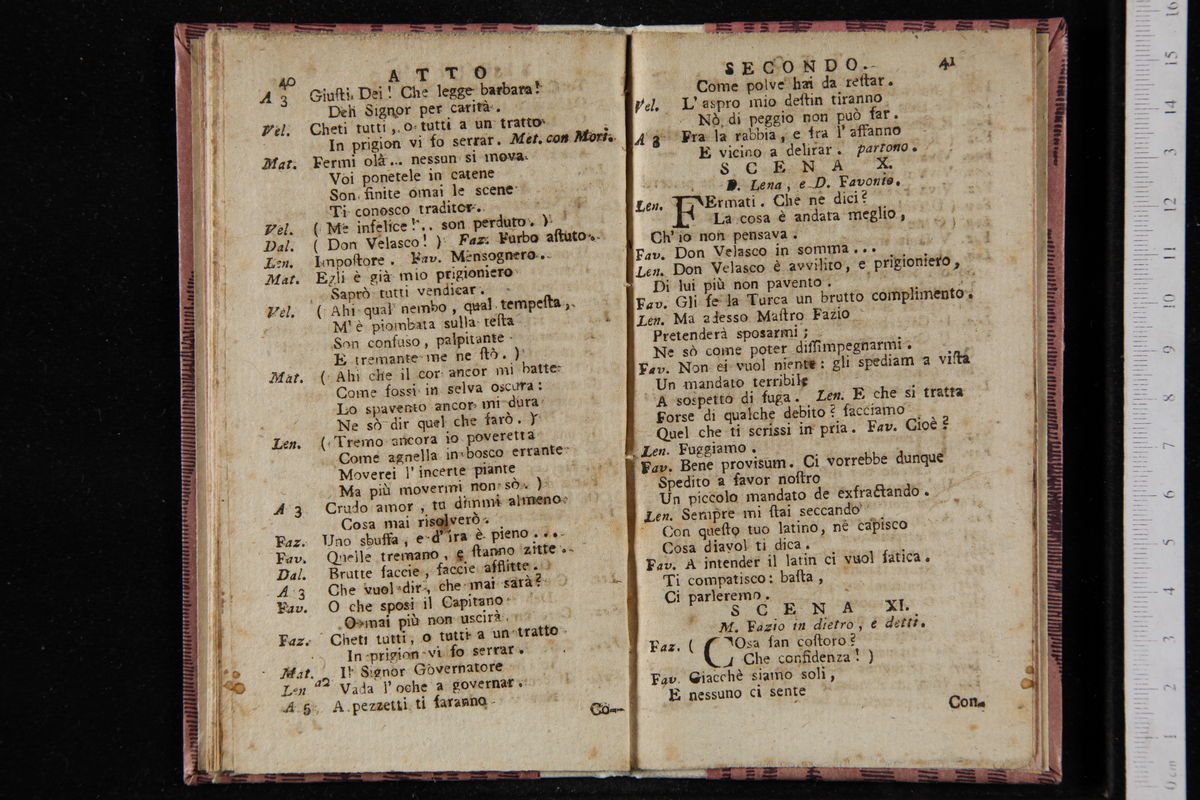 40
ATTO
A 3 Giuſti Dei! Che legge barbara!
Deh Signor per carità.
Vel. Cheti tutti, o tutti a un tratto
In prigion vi fo serrar. Met. con Mori.
Mat. Fermi olà... nessun si mova
Voi ponetele in catene
Son finite omai le scene
Ti conosco traditor.
Vel. ( Me infelice!.. son perduto. )
Dal. ( Don Velasco! ) Faz. Furbo aſtuto.
Len. Impoſtore. Fav. Mensognero.
Mat. Egli è già mio prigioniero
Saprò tutti vendicar.
Vel. ( Ahi qual nembo, qual tempeſta,
M'è piombata sulla teſta
Son confuso, palpitante
E tremante me ne ſtò. )
Mat. ( Ahi che il cor ancor mi batte
Come fossi in selva oscura:
Lo spavento ancor mi dura
Ne sò dir quel che farò. )
Len. ( Tremo ancora io poveretta
Come agnella in bosco errante
Moverei l'incerte piante
Ma più movermi non sò. )
A 3 Crudo amor, tu dimmi almeno
Cosa mai risolverò.
Faz. Uno sbuffa, e d'ira è pieno...
Fav. Quelle tremano, e ſtanno zitte..
Dal. Brutte faccie, faccie afflitte.
A 3 Che vuol dir, che mai sarà?
Fav. O che sposi il Capitano
O mai più non uscirà.
Faz. Cheti tutti, o tutti a un tratto
In prigion vi fo serrar.
Mat. Il Signor Governatore
Len a2 Vada l'oche a governar.
A 5 A pezzetti ti faranno
Co-
SECONDO.
41
Come polve hai da reſtar.
Vel. L'aspro mio deſtin tiranno
Nò di peggio non può far.
A 3 Fra la rabbia, e fra l'affanno
E vicino a delirar. partono.
SCENA X.
D. Lena, e D. Favonio.
Len. FErmati. Che ne dici?
La cosa è andata meglio,
Ch'io non pensava.
Fav. Don Velasco in somma...
Len. Don Velasco è avvilito, e prigioniero,
Di lui più non pavento.
Fav. Gli fe la Turca un brutto complimento.
Len. Ma adesso Maſtro Fazio
Pretenderà sposarmi;
Ne sò come poter diſſimpegnarmi.
Fav. Non ci vuol niente: gli spediam a viſta
Un mandato terribile
A sospetto di fuga. Len. E che si tratta
Forse di qualche debito? facciamo
Quel che ti scrissi in pria. Fav. Cioè?
Len. Fuggiamo.
Fav. Bene provisum. Ci vorrebbe dunque
Spedito a favor noſtro
Un piccolo mandato de exfractando.
Len. Sempre mi ſtai seccando
Con queſto tuo latino, nè capisco
Cosa diavol ti dica.
Fav. A intender il latin ci vuol fatica.
Ti compatisco: baſta,
Ci parleremo.
SCENA XI.
M. Fazio in dietro, e detti.
Faz. ( COsa fan coſtoro?
Che confidenza! )
Fav. Giacchè siamo soli,
E nessuno ci sente
Con-